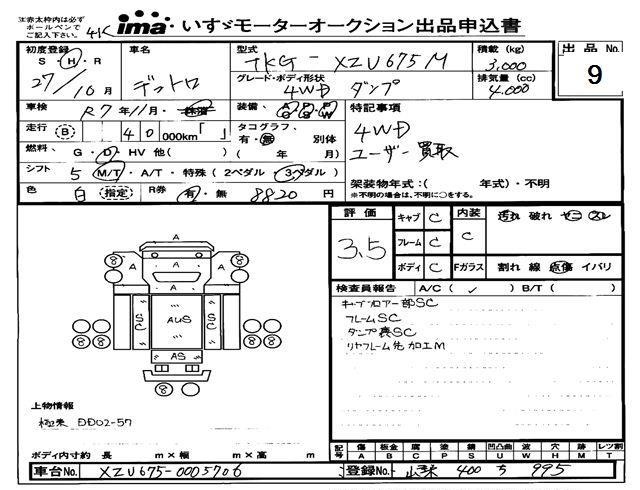 注)赤太枠内は必ず
ボールペンで
ご記入下さい。
ima いすゞモーターオークション出品申込書
初度登録 S・H・R 27/10月
車名 デュトロ
型式 TKG-XZU675M
グレード・ボディ形状 4WD ダンプ
積載(kg) 3,000
排気量(cc) 4,000
出品No. 9
車検 R7年11月・抹消
装備、A/C P/S P/W
特記事項
走行 (B) 40 000km「 」
タコグラフ、有・無 別体
4WD
燃料、G・D・HV 他( ) ( 年 月)
ユーザー買取
シフト 5 M/T・A/T・特殊(2ペダル・3ペダル)
架装物年式:( 年式)・不明
色 白(指定) R券 有・無 8820円
※不明の場合は、不明に○をする。
評価 3.5
キャブ C
内装 C
汚れ 破れ ヤニ スレ
フレーム C
ボディ C
Fガラス 割れ 線 点傷 イバリ
検査員報告 A/C(✓) B/T( )
キャブフロアー部SC
フレームSC
ダンプ裏SC
リヤフレーム先加工M
A
A
A A
SC AUS SC
AS
8 8
8 8
8
上物情報
極東 DD02-57
ボディ内寸約 長 m×幅 m×高 m
記号 傷 板金 腐 塗 錆 凹凸曲 波 穴 跡 レツ割
A B C P S U W H M T
車台No. XZU675-0005706
登録No. 400 ち 995